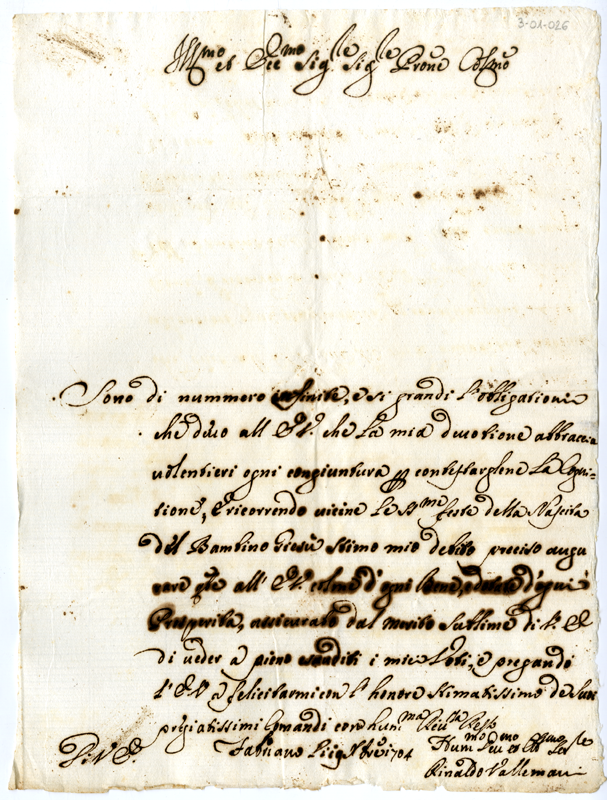 3-01-026
Ill.mo et Ecc.mo Sig.le Sig.le Prone Col.mo
Sono di nummero infinite, e si grandi l'obligationi
che devo all' E.V. che la mia devotione abbraccia
volentieri ogni congiuntura per contestarglene la
tione, E ricorrendo vicine le SS.me feste della Nascita
del Bambino Giesù stimo mio debito preciso augu
rare all' E.V. d'ogni bene, e d'ogni
Prosperità, assicurato dal merito sublime di V.E.
di veder a pieno esauditi i miei Voti, e pregando
l'E.V. a felicitarmi con l'honore stimatissimo de suoi
pregiatissimi Comandi con hum.ma
Di V.E.
Fabriano li 1704
Hum.mo Dev.mo et Obl.mo Ser.le
Rinaldo Vallemani